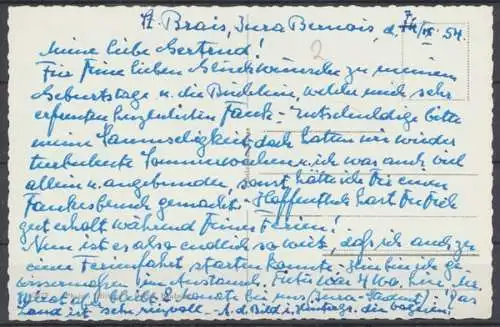 St Brais, Jura Bernois, d. 7/IX. 54.
Meine liebe Gertrud!
Für Deine lieben Glückwünsche zu meinem
Geburtstage u. die Büchlein, welche mich sehr
erfreuten herzlichsten Dank. Entschuldige bitte
meine Saumseligkeit, doch hatten wir wieder
turbulente Sommerwochen u. ich war auch viel
allein u. angebunden, sonst hätte ich Dir einen
Dankesbesuch gemacht. Hoffentlich hast Du Dich
gut erholt während Deines Ferien!
Nun ist es also endlich so weit, daß ich auch zu
einer Ferienfahrt starten konnte. Hier bin ich ge-
wissermaßen im Ausland. War 4 Wo. hier, im
bleibt Monate bei uns Jura-
Land ist sehr reizvoll. A. d. Bild i. Hinterg. die
2